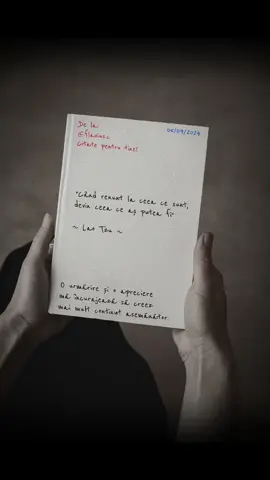 De la
06/09/2024
Citate pentru tine!
"Când renunț la ceea ce sunt,
devin ceea ce aș putea fi"
~ Lao Tzu ~
O urmărire și o apreciere
mă încurajează să creez
mai mult conținut asemănător